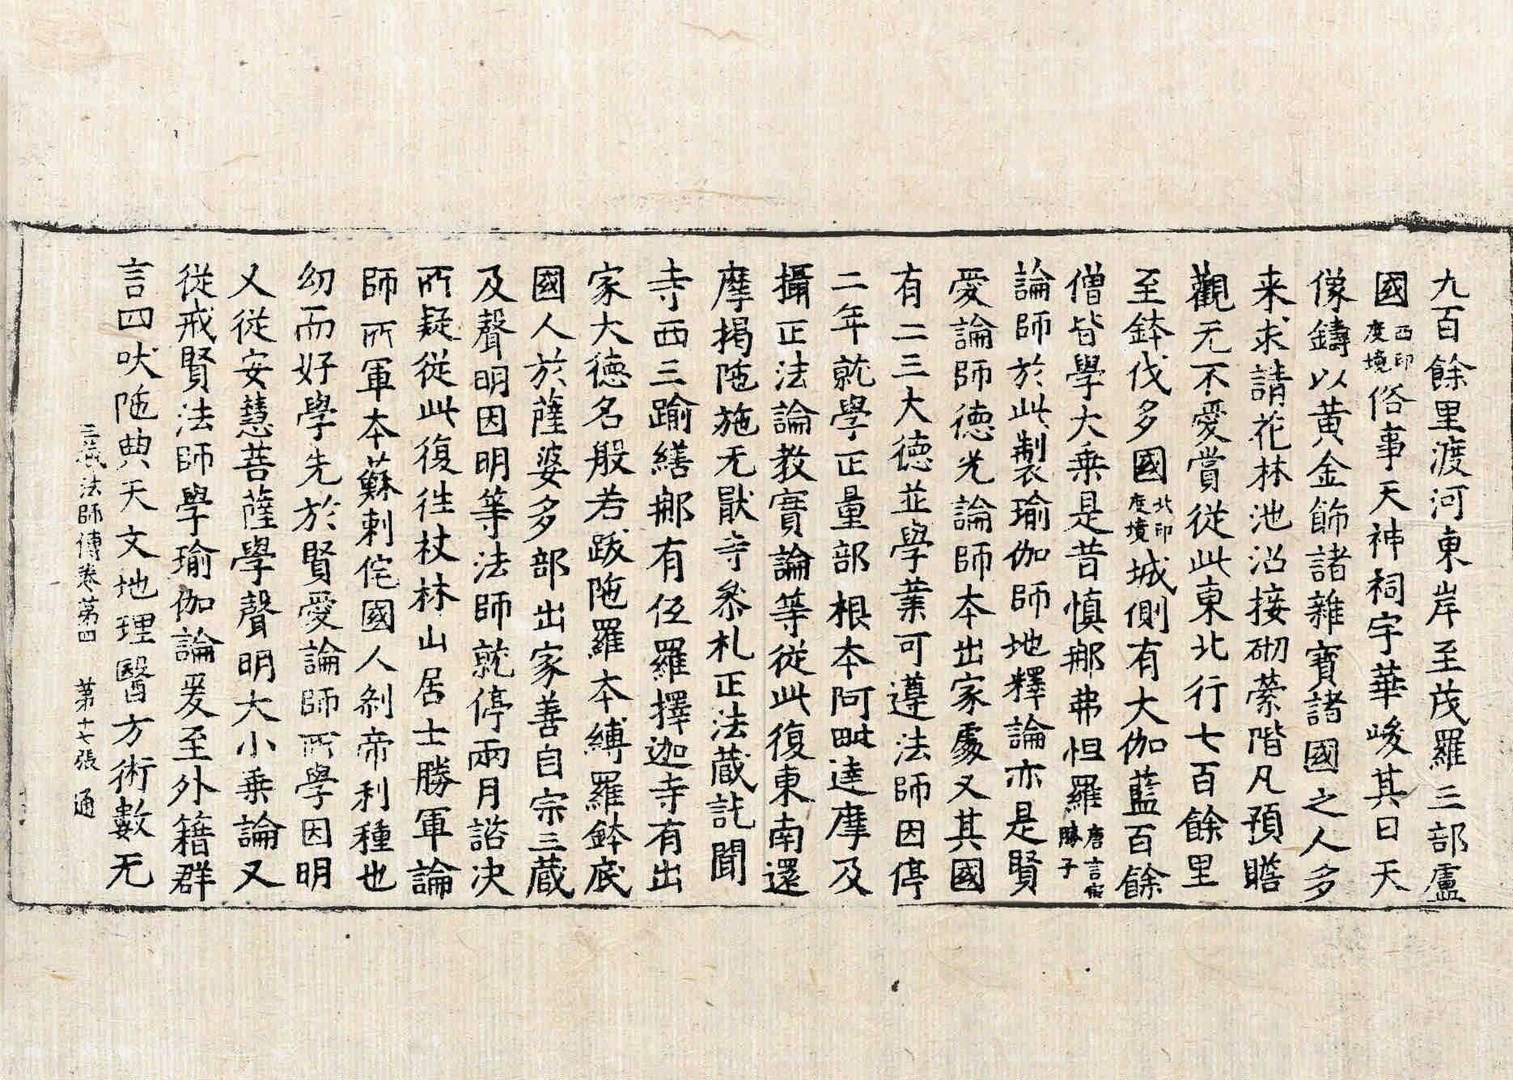 九百餘里渡河東岸至茂羅三部盧
國西印度境俗事天神祠宇華峻其日天
像鑄以黃金飾諸雜寶諸國之人多
来求請花林池沼接砌縈階凡預瞻
觀无不愛賞從此東北行七百餘里
至鉢伐多國北印度境城側有大伽藍百餘
僧皆學大乗是昔慎那弗怛羅唐言㝡勝子
論師於此製瑜伽師地釋論亦是賢
愛論師德光論師本出家處又其國
有二三大德並學業可遵法師因停
二年就學正量部根本阿毗達摩及
攝正法論教實論等從此復東南還
摩揭陁施无厭寺叅礼正法蔵訖聞
寺西三踰繕那有伍羅擇迦寺有出
家大德名般若跋陁羅本縛羅鉢底
國人於薩婆多部出家善自宗三蔵
及聲明因明等法師就停兩月諮决
所疑從此復徃杖林山居士勝軍論
師所軍本蘇剌佗國人剎帝利種也
幼而好學先於賢愛論師所學因明
又從安慧菩薩學聲明大小乗論又
從戒賢法師學瑜伽論爰至外籍群
言四吠陁典天文地理醫方術數无
三蔵法師傳卷第四 第十七張 通